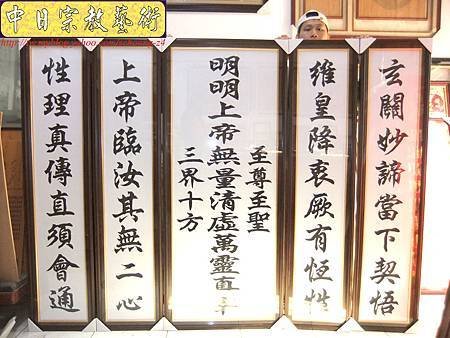 中日宗教藝術
玄關妙諦當下契悟
維皇降衷厥有恆性
至尊至聖
明明上帝無量清虛萬靈真宰
三界十方
上帝臨汝其無二心
性理真傳直須會通